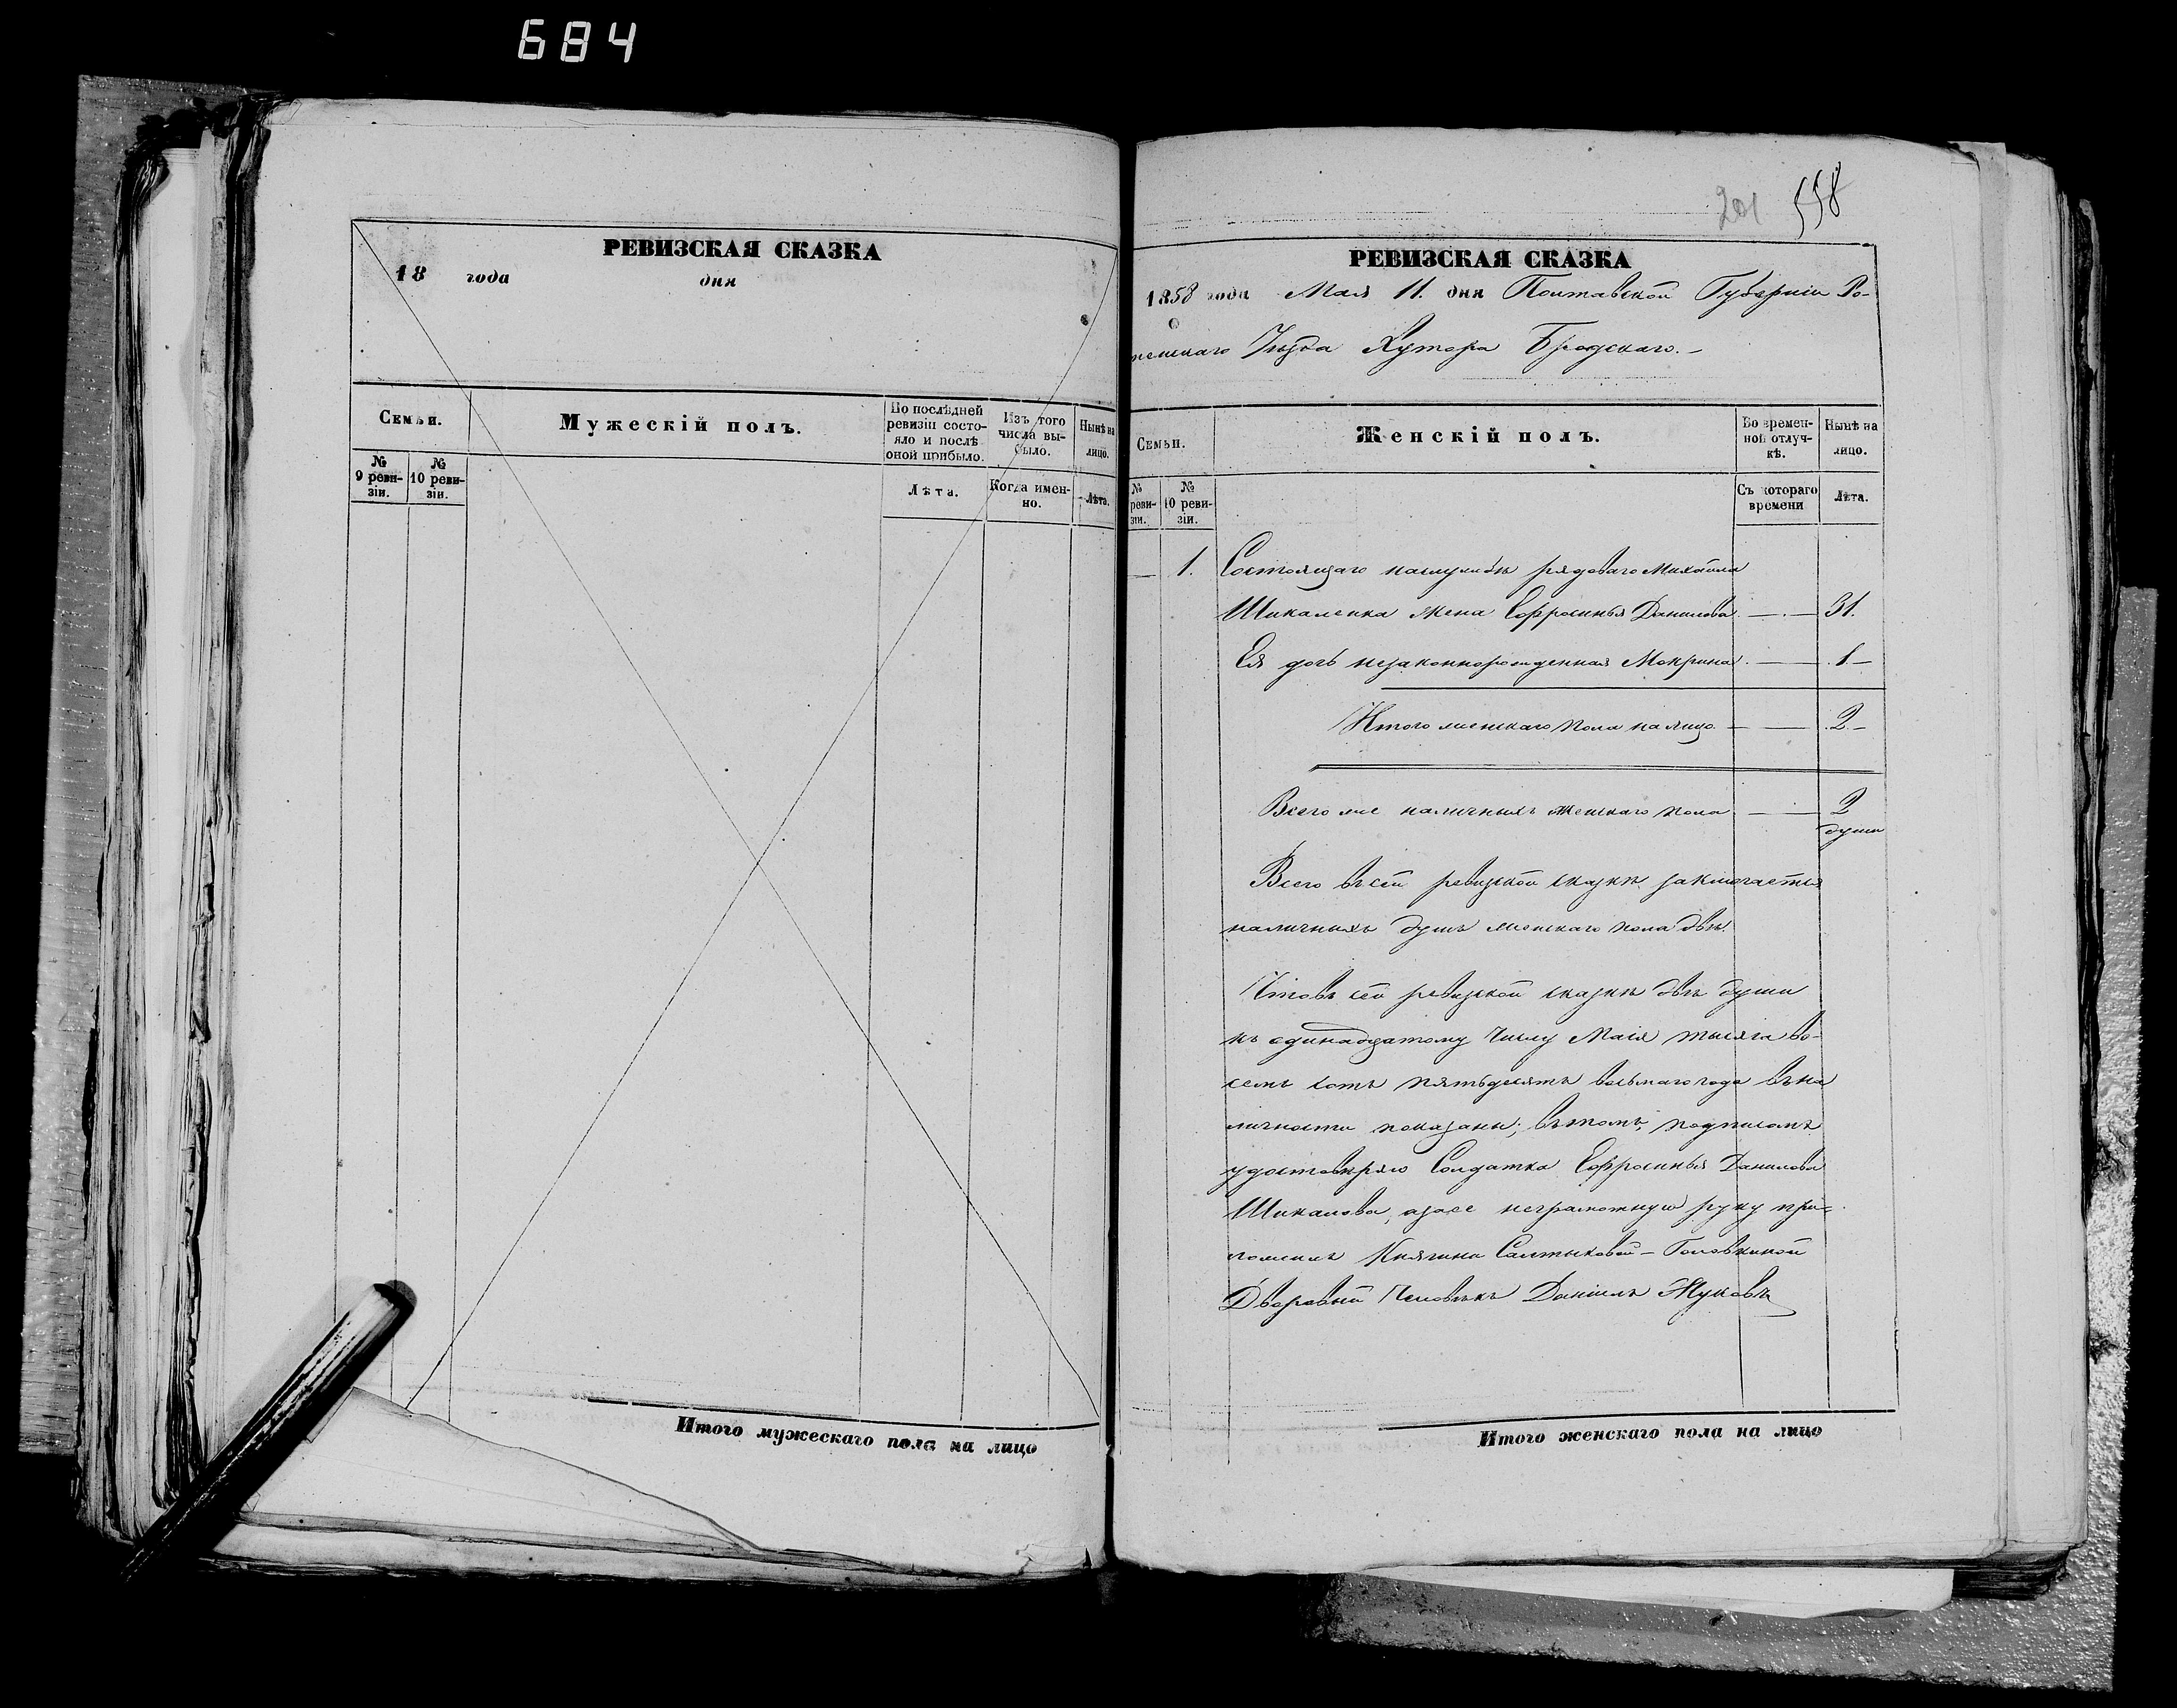 684
РЕВИЗСКАЯ СКАЗКА
18 года дня
Семьи.
Мужескій полъ.
По послѣдней ревизіи состояло и послѣ оной прибыло.
Изъ того числа выбыло.
Нынѣ на лицо.
№ 9 ревизіи.
№ 10 ревизіи.
Лѣта.
Когда именно.
Лѣта.
Итого мужескаго пола на лицо
201 558
РЕВИЗСКАЯ СКАЗКА
1858 года Мая 11. дня Полтавской Губерніи Ро-
менскаго Уѣзда Хутора Бродскаго.-
Семьи.
Женскій полъ.
Во временной отлучкѣ.
Нынѣ на лицо.
№ ревизіи.
№ 10 ревизіи.
Съ котораго времени
Лѣта.
— 1. Состоящаго наслужбѣ рядоваго Михаила
Шикаленка жена Ефросинья Данилова — 31.
Ея дочь незаконнорожденная Мокрина — 1 —
Итого женскаго пола налицо — 2 —
Всего же наличныхъ женскаго пола — 2
души
Всего въ сей ревизской сказкѣ заключается
наличныхъ душъ женскаго пола двѣ.
Чтовъ сей ревизской сказкѣ двѣ души
къ одинадцатому числу Маія тысяча во-
семь сотъ пятьдесятъ восьмаго года въ на
личности показаны; въ томъ, подписомъ
удостовѣряю Солдатка Ефросинья Данилова
Шикалова, азаее неграмотную руку при-
ложилъ Княгини Салтыковой-Головкиной
Дворовый Человѣкъ Даніилъ Жуковъ
Итого женскаго пола на лицо